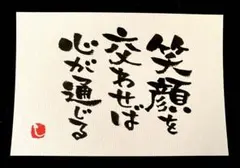 笑顔を
交わせば
心が通じる